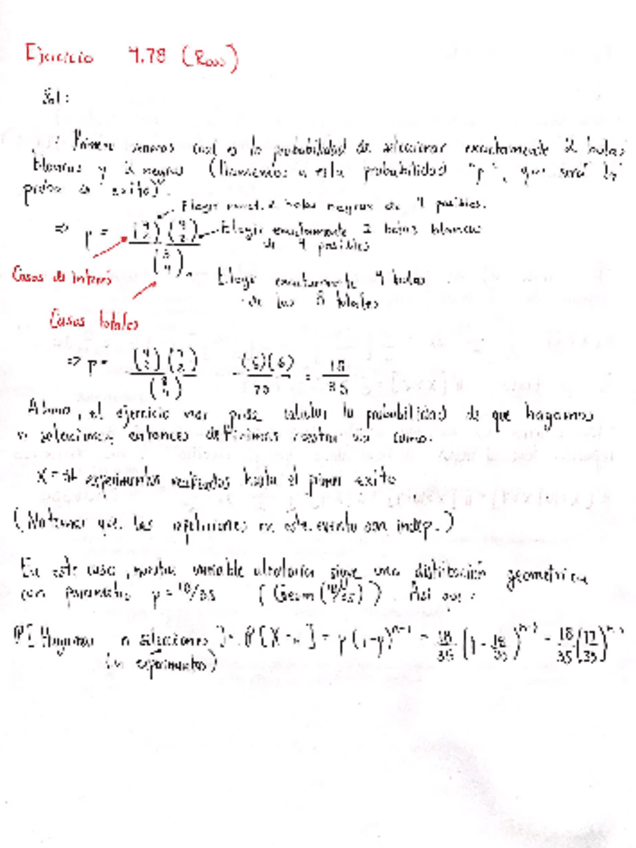 Ejercicio 4.78 (Ross)
Sol:
Primero veamos cual es la probabilidad de seleccionar exactamente 2 bolas
blancas y 2 negras (llamemos a esta probabilidad "p", que será la
proba de exito).
Elegir exact. 2 bolas negras de 4 posibles.
⇒ p = (4 2)(4 2) / (8 4)
Elegir exactamente 2 bolas blancas
de 4 posibles
Casos de interés
Elegir exactamente 4 bolas
de las 8 totales
Casos totales
⇒ p = (4 2)(4 2) / (8 4) = (6)(6) / 70 = 18 / 35
Ahora, el ejercicio nos pide calcular la probabilidad de que hagamos
n selecciones, entonces definimos nuestra v.a como.
X = # experimentos realizados hasta el primer exito
(Notemos que las repeticiones en este evento son indep.)
En este caso, nuestra variable aleatoria sigue una distribución geometrica
con parametro p = 18/35 (Geom(18/35)). Asi que:
P[Hagamos n selecciones] = P[X = n] = p(1-p)^{n-1} = 18/35 (1 - 18/35)^{n-1} = 18/35 (17/35)^{n-1}
(n experimentos)